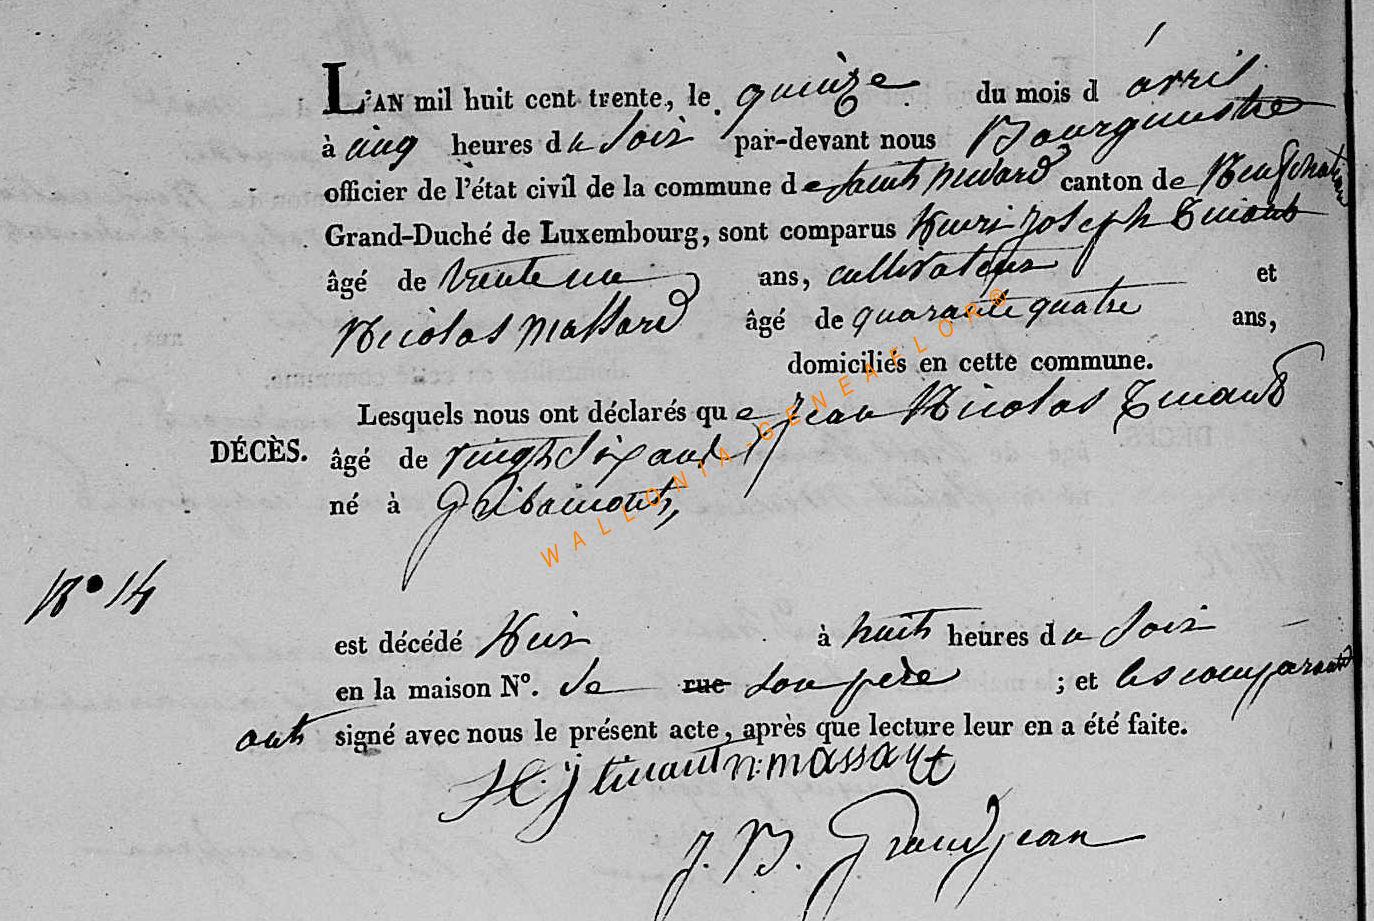 L'AN mil huit cent trente, le quinze du mois d avril
à cinq heures du soir par-devant nous Bourguestre
officier de l'état civil de la commune de saint medard canton de Neufchateau
Grand-Duché de Luxembourg, sont comparus Henri Joseph Tinant
âgé de trente un ans, cultivateur et
Nicolas Massard âgé de quarante quatre ans,
domiciliés en cette commune.
Lesquels nous ont déclarés que Jean Nicolas Tinant
DÉCÈS. âgé de vingt six ans
né à Gribaimont,
N° 14
est décédé hier à huit heures du soir
en la maison N°. de rue son père ; et les comparant
ont signé avec nous le présent acte, après que lecture leur en a été faite.
H. j tinant n: massart
J. B. Grandjean
WALLONIA-GENEAFLORE